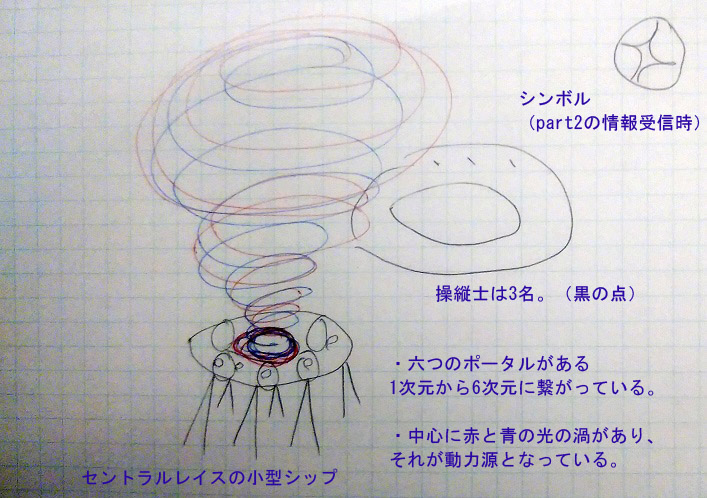 シンボル
（part2の情報受信時）
操縦士は3名。（黒の点）
・六つのポータルがある
1次元から6次元に繋がっている。
・中心に赤と青の光の渦があり、
それが動力源となっている。
セントラルレイスの小型シップ